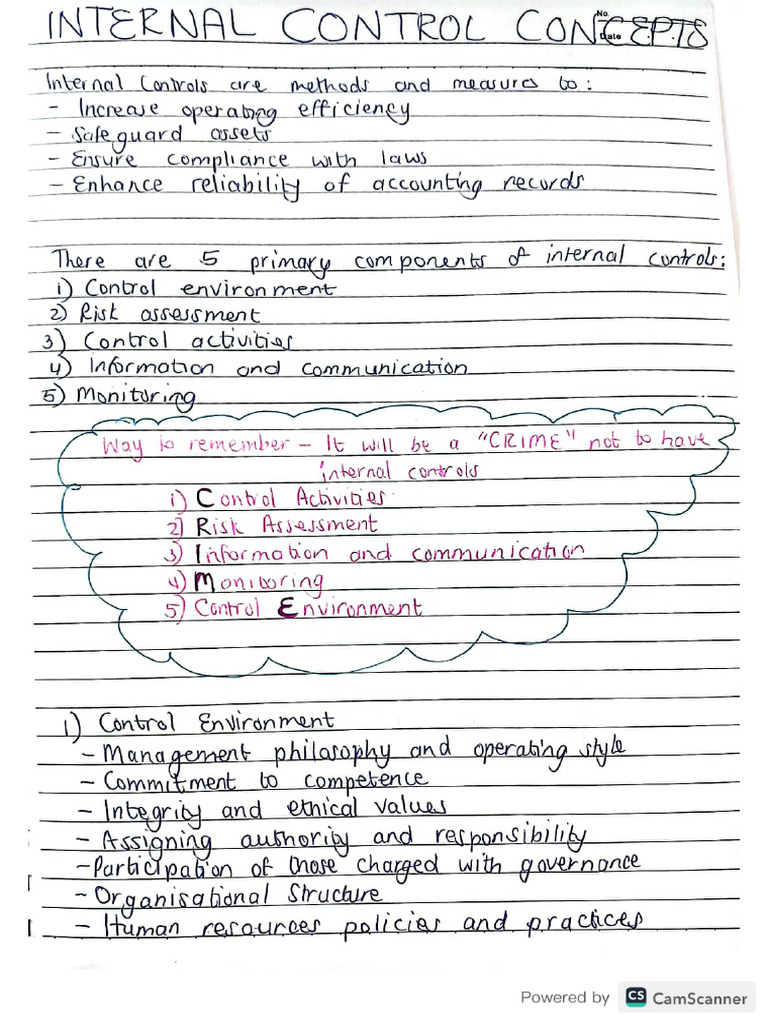 INTERNAL CONTROL CONCEPTS
No.
Date
Internal Controls are methods and measures to:
- Increase operating efficiency
- Safeguard assets
- Ensure compliance with laws
- Enhance reliability of accounting records
There are 5 primary components of internal controls:
1) Control environment
2) Risk assessment
3) Control activities
4) Information and communication
5) Monitoring
Way to remember - It will be a "CRIME" not to have
internal controls
1) Control Activities
2) Risk Assessment
3) Information and communication
4) Monitoring
5) Control Environment
1) Control Environment
- Management philosophy and operating style
- Commitment to competence
- Integrity and ethical values
- Assigning authority and responsibility
- Participation of those charged with governance
- Organisational Structure
- Human resources policies and practices
Powered by CS CamScanner